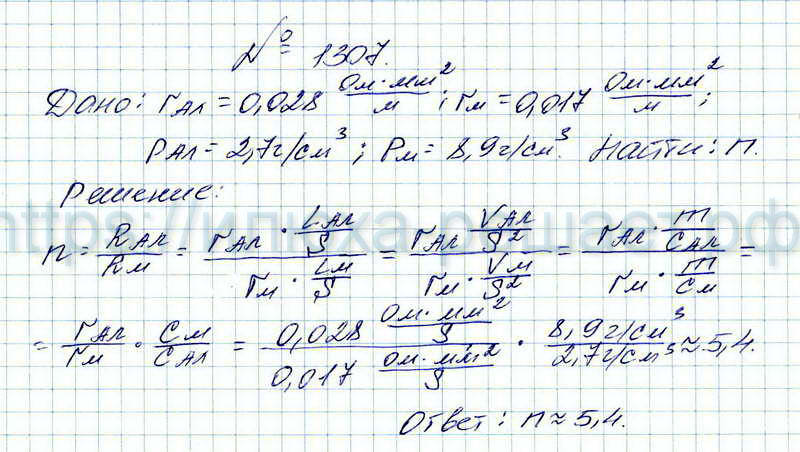 № 1307.
Дано: rАл = 0,028 Ом·мм²/м; rм = 0,017 Ом·мм²/м;
ρАл = 2,7г/см³; ρм = 8,9г/см³. Найти: n.
Решение:
n = RАл/Rм = (rАл · LАл/S)/(rм · Lм/S) = (rАл · VАл/S²)/(rм · Vм/S²) = (rАл · m/CАл)/(rм · m/Cм) =
= rАл/rм · Cм/CАл = (0,028 Ом·мм²/S)/(0,017 Ом·мм²/S) · 8,9г/см³/2,7г/см³ ≈ 5,4.
Ответ: n ≈ 5,4.